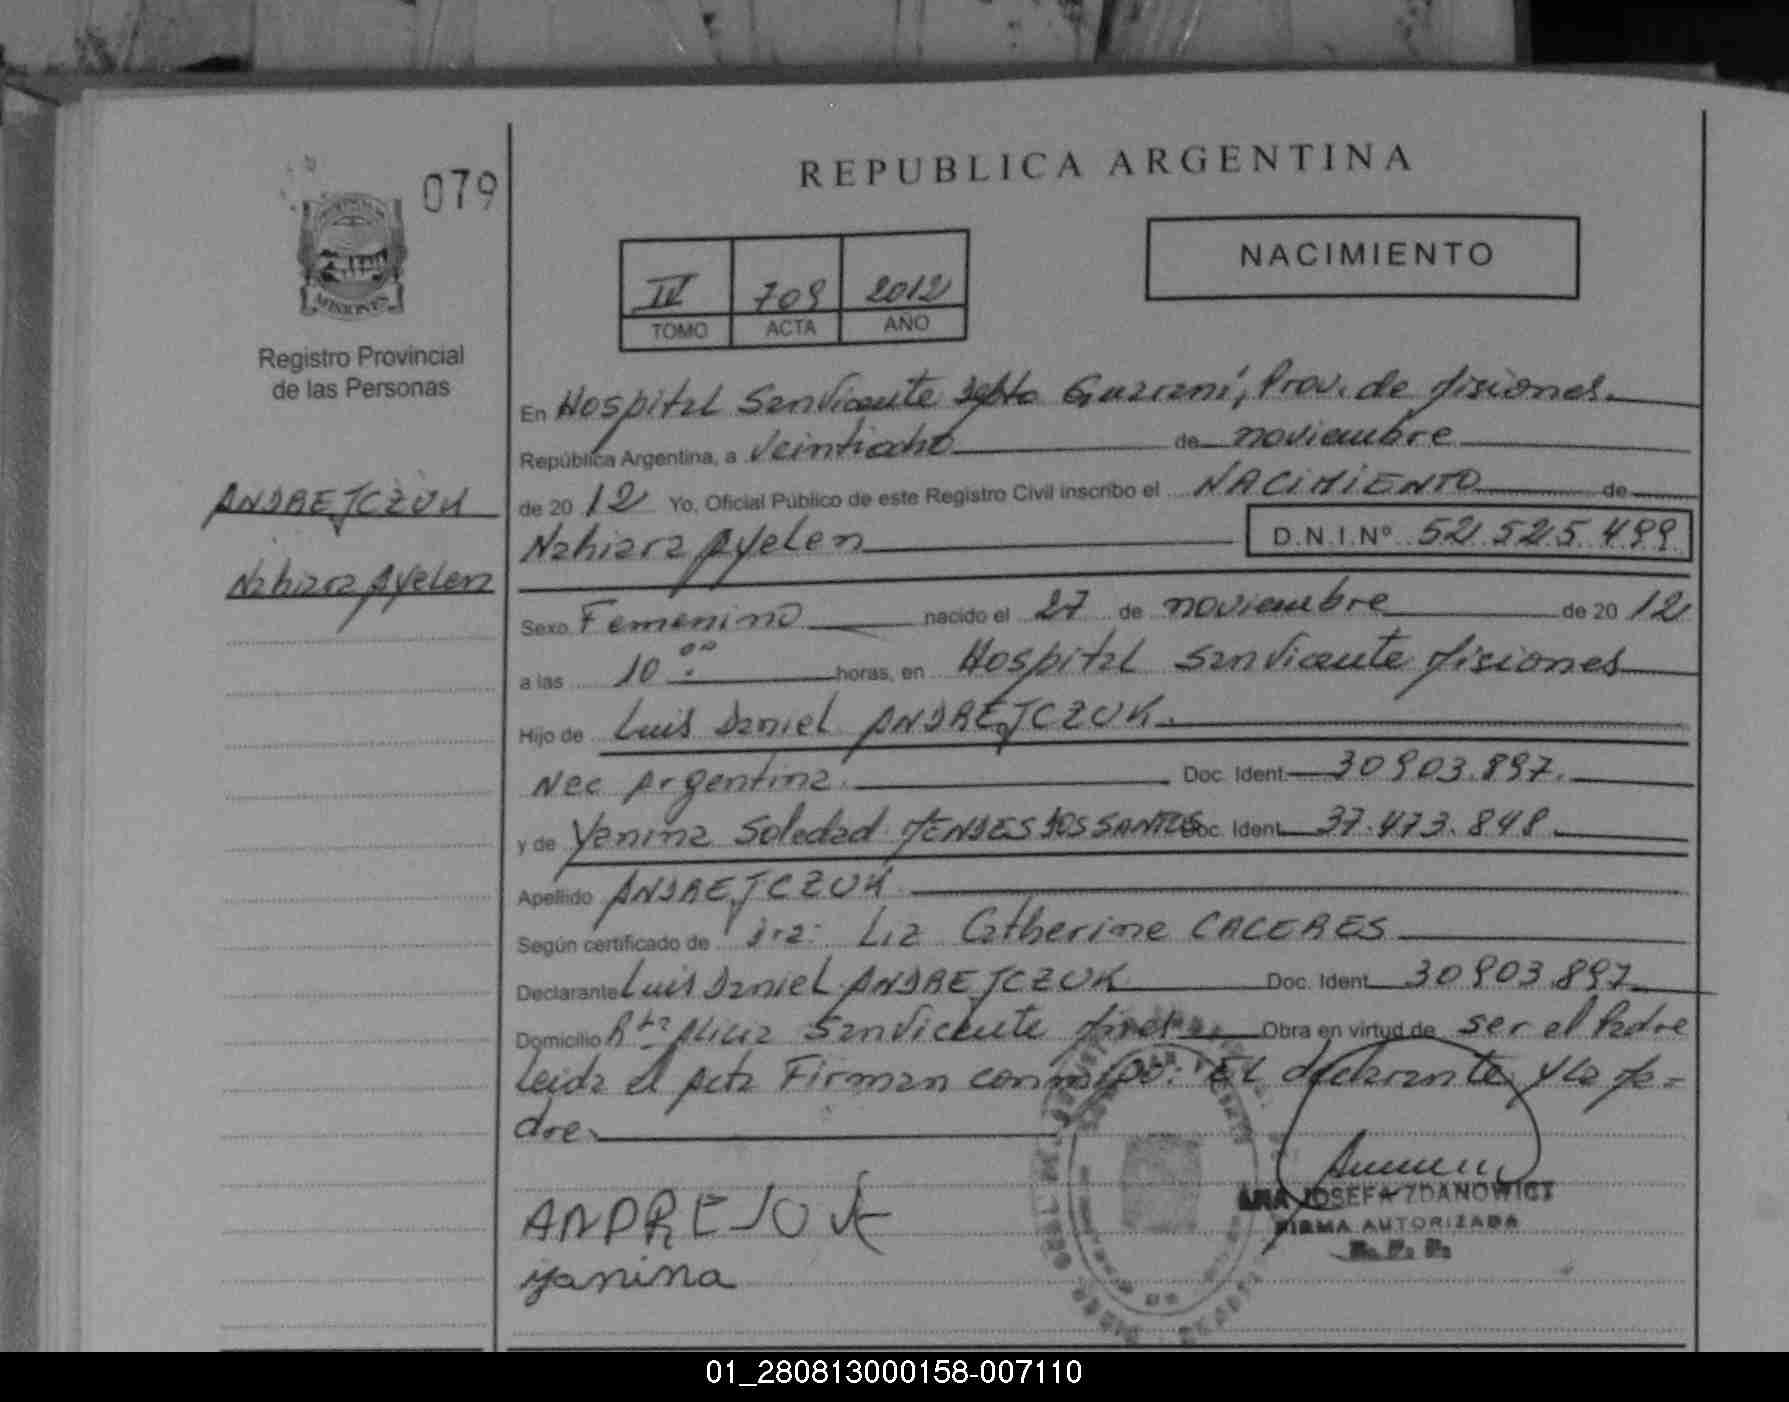 079
REPUBLICA ARGENTINA
NACIMIENTO
IV 709 2012
TOMO ACTA AÑO
MISIONES
Registro Provincial
de las Personas
En Hospital San Vicente Depto Guarani, Prov. de Misiones.
República Argentina, a Veintiocho de noviembre
de 2012 Yo, Oficial Público de este Registro Civil inscribo el NACIMIENTO de
ANDREJCZUK
Nahiara Ayelen D.N.I.Nº 52.525.499
Nahiara Ayelen
Sexo Femenino nacido el 27 de noviembre de 2012
a las 10:00 horas, en Hospital San Vicente Misiones
Hijo de Luis Daniel ANDREJCZUK.
Nac Argentina. Doc. Ident. 30903.897.
y de Yanina Soledad MENDES DOS SANTOS Doc. Ident. 37.473.848.
Apellido ANDREJCZUK
Según certificado de Dra: Liz Catherine CACERES
Declarante Luis Daniel ANDREJCZUK Doc. Ident. 30903.897
Domicilio Rta Alicia San Vicente Mnes Obra en virtud de ser el Padre
Leida el Acta Firman conmigo: El declarante y la Ma=
dre.
ANDREJ
yanina
ANA JOSEFA ZDANOWICZ
FIRMA AUTORIZADA
R. P. P.
01_280813000158-007110